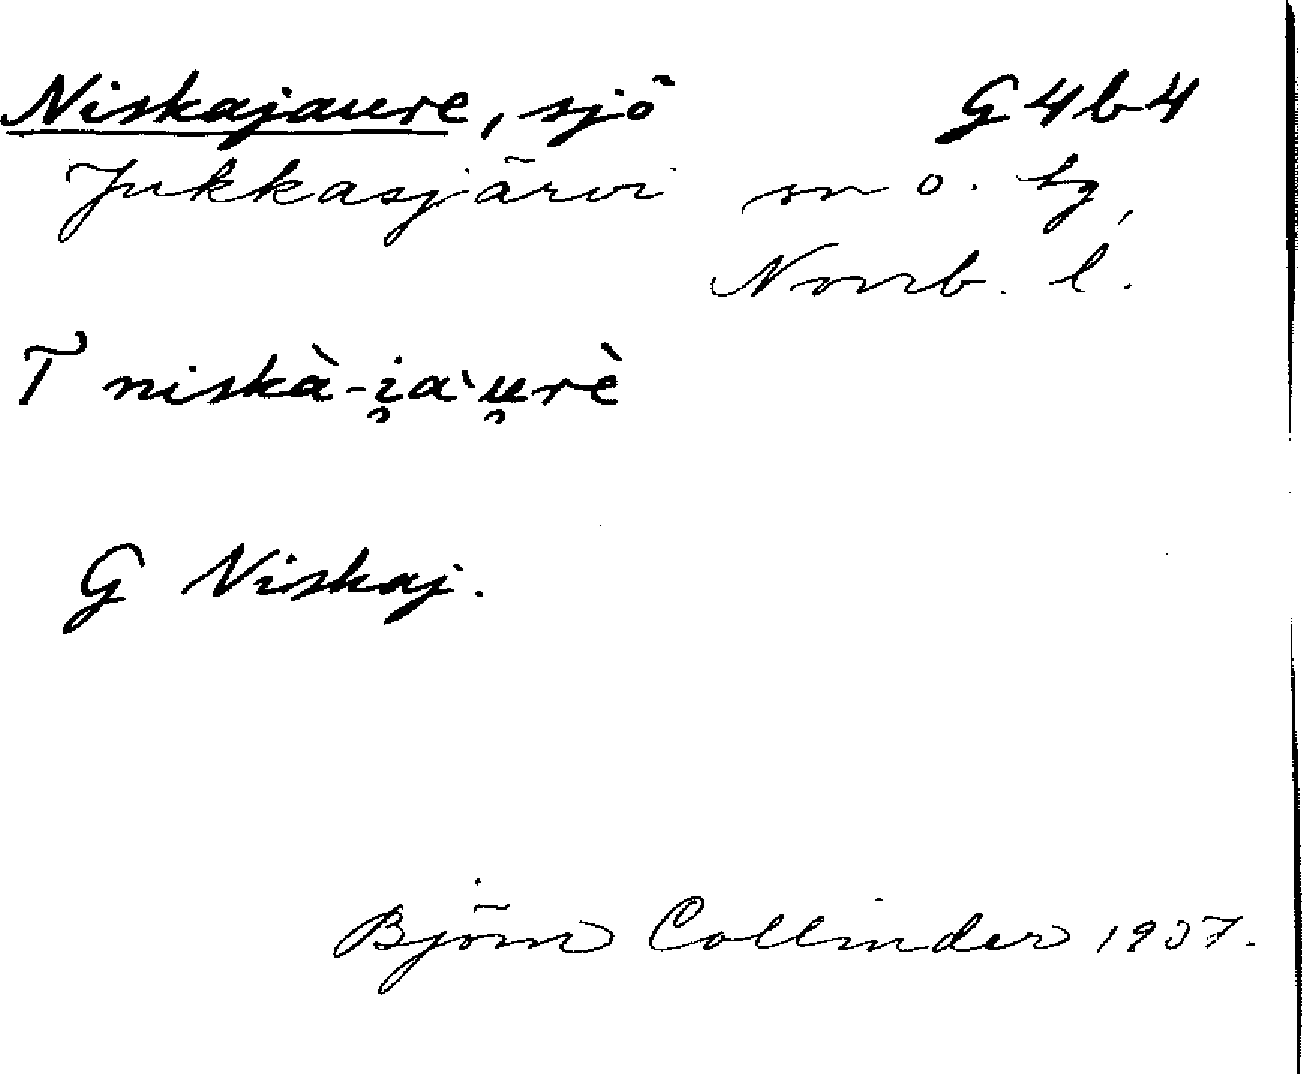 Niskajaure, sjö G4b4
Jukkasjärvi sn o. tg,
Norrb. l.
T niskà-i̯aˋu̯rè
G Niskaj.
Björn Collinder 1937.